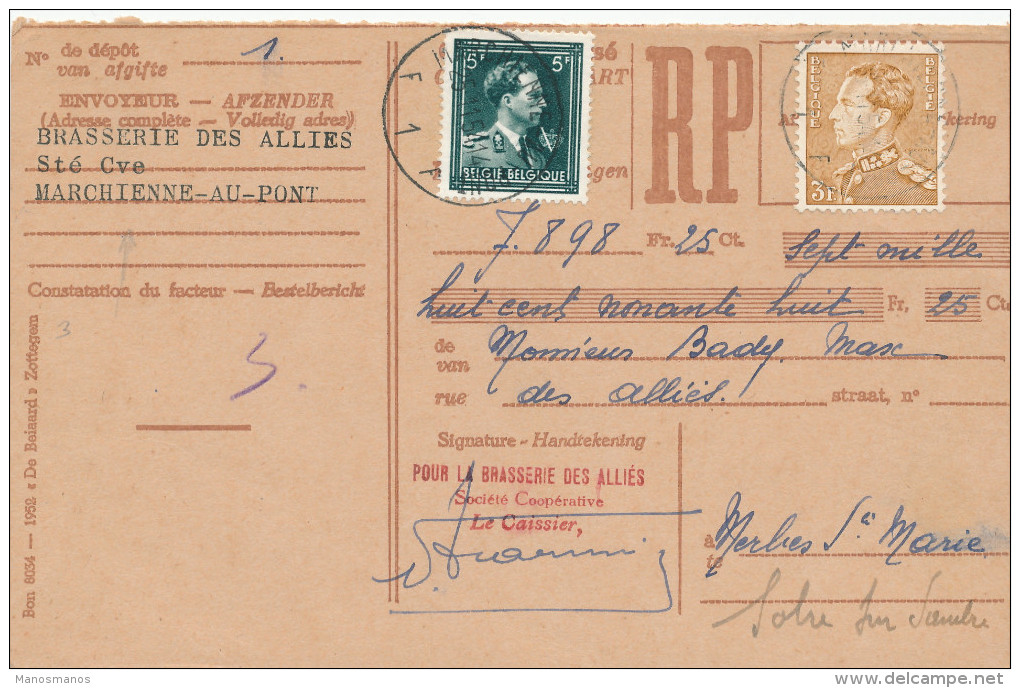 N° de dépôt
van afgifte
1.
ENVOYEUR — AFZENDER
(Adresse complète — Volledig adres)
BRASSERIE DES ALLIES
Sté Cve
MARCHIENNE-AU-PONT
Constatation du facteur — Bestelbericht
3
3.
Bon 8034 — 1952 « De Baiaard » Zottegem
5F 5F
BELGIE BELGIQUE
F 1 F
RP
BELGIQUE BELGIE
3F.
7.898 Fr. 25 Ct. Sept mille
huit cent nonante huit Fr, 25 Ct
de
van Monsieur Bady Max
rue des alliés. straat, n°
Signature - Handtekening
POUR LA BRASSERIE DES ALLIÉS
Société Coopérative
Le Caissier,
à
te Merbes Sᵗᵉ Marie
Solre sur Sambre
Manosmanos
delcampe.net